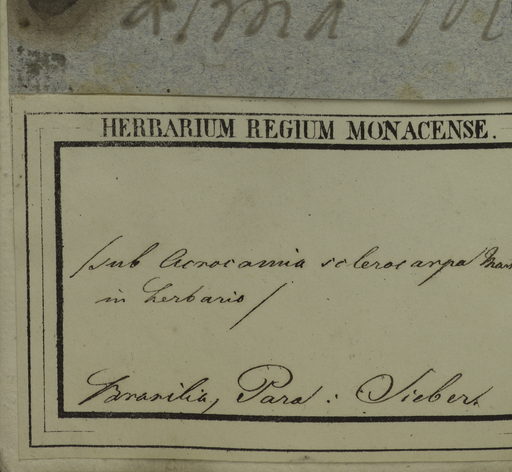 HERBARIUM REGIUM MONACENSE.
/sub Acrocomia sclerocarpa Mart
in herbario/
Brasilia, Para: Sieber.